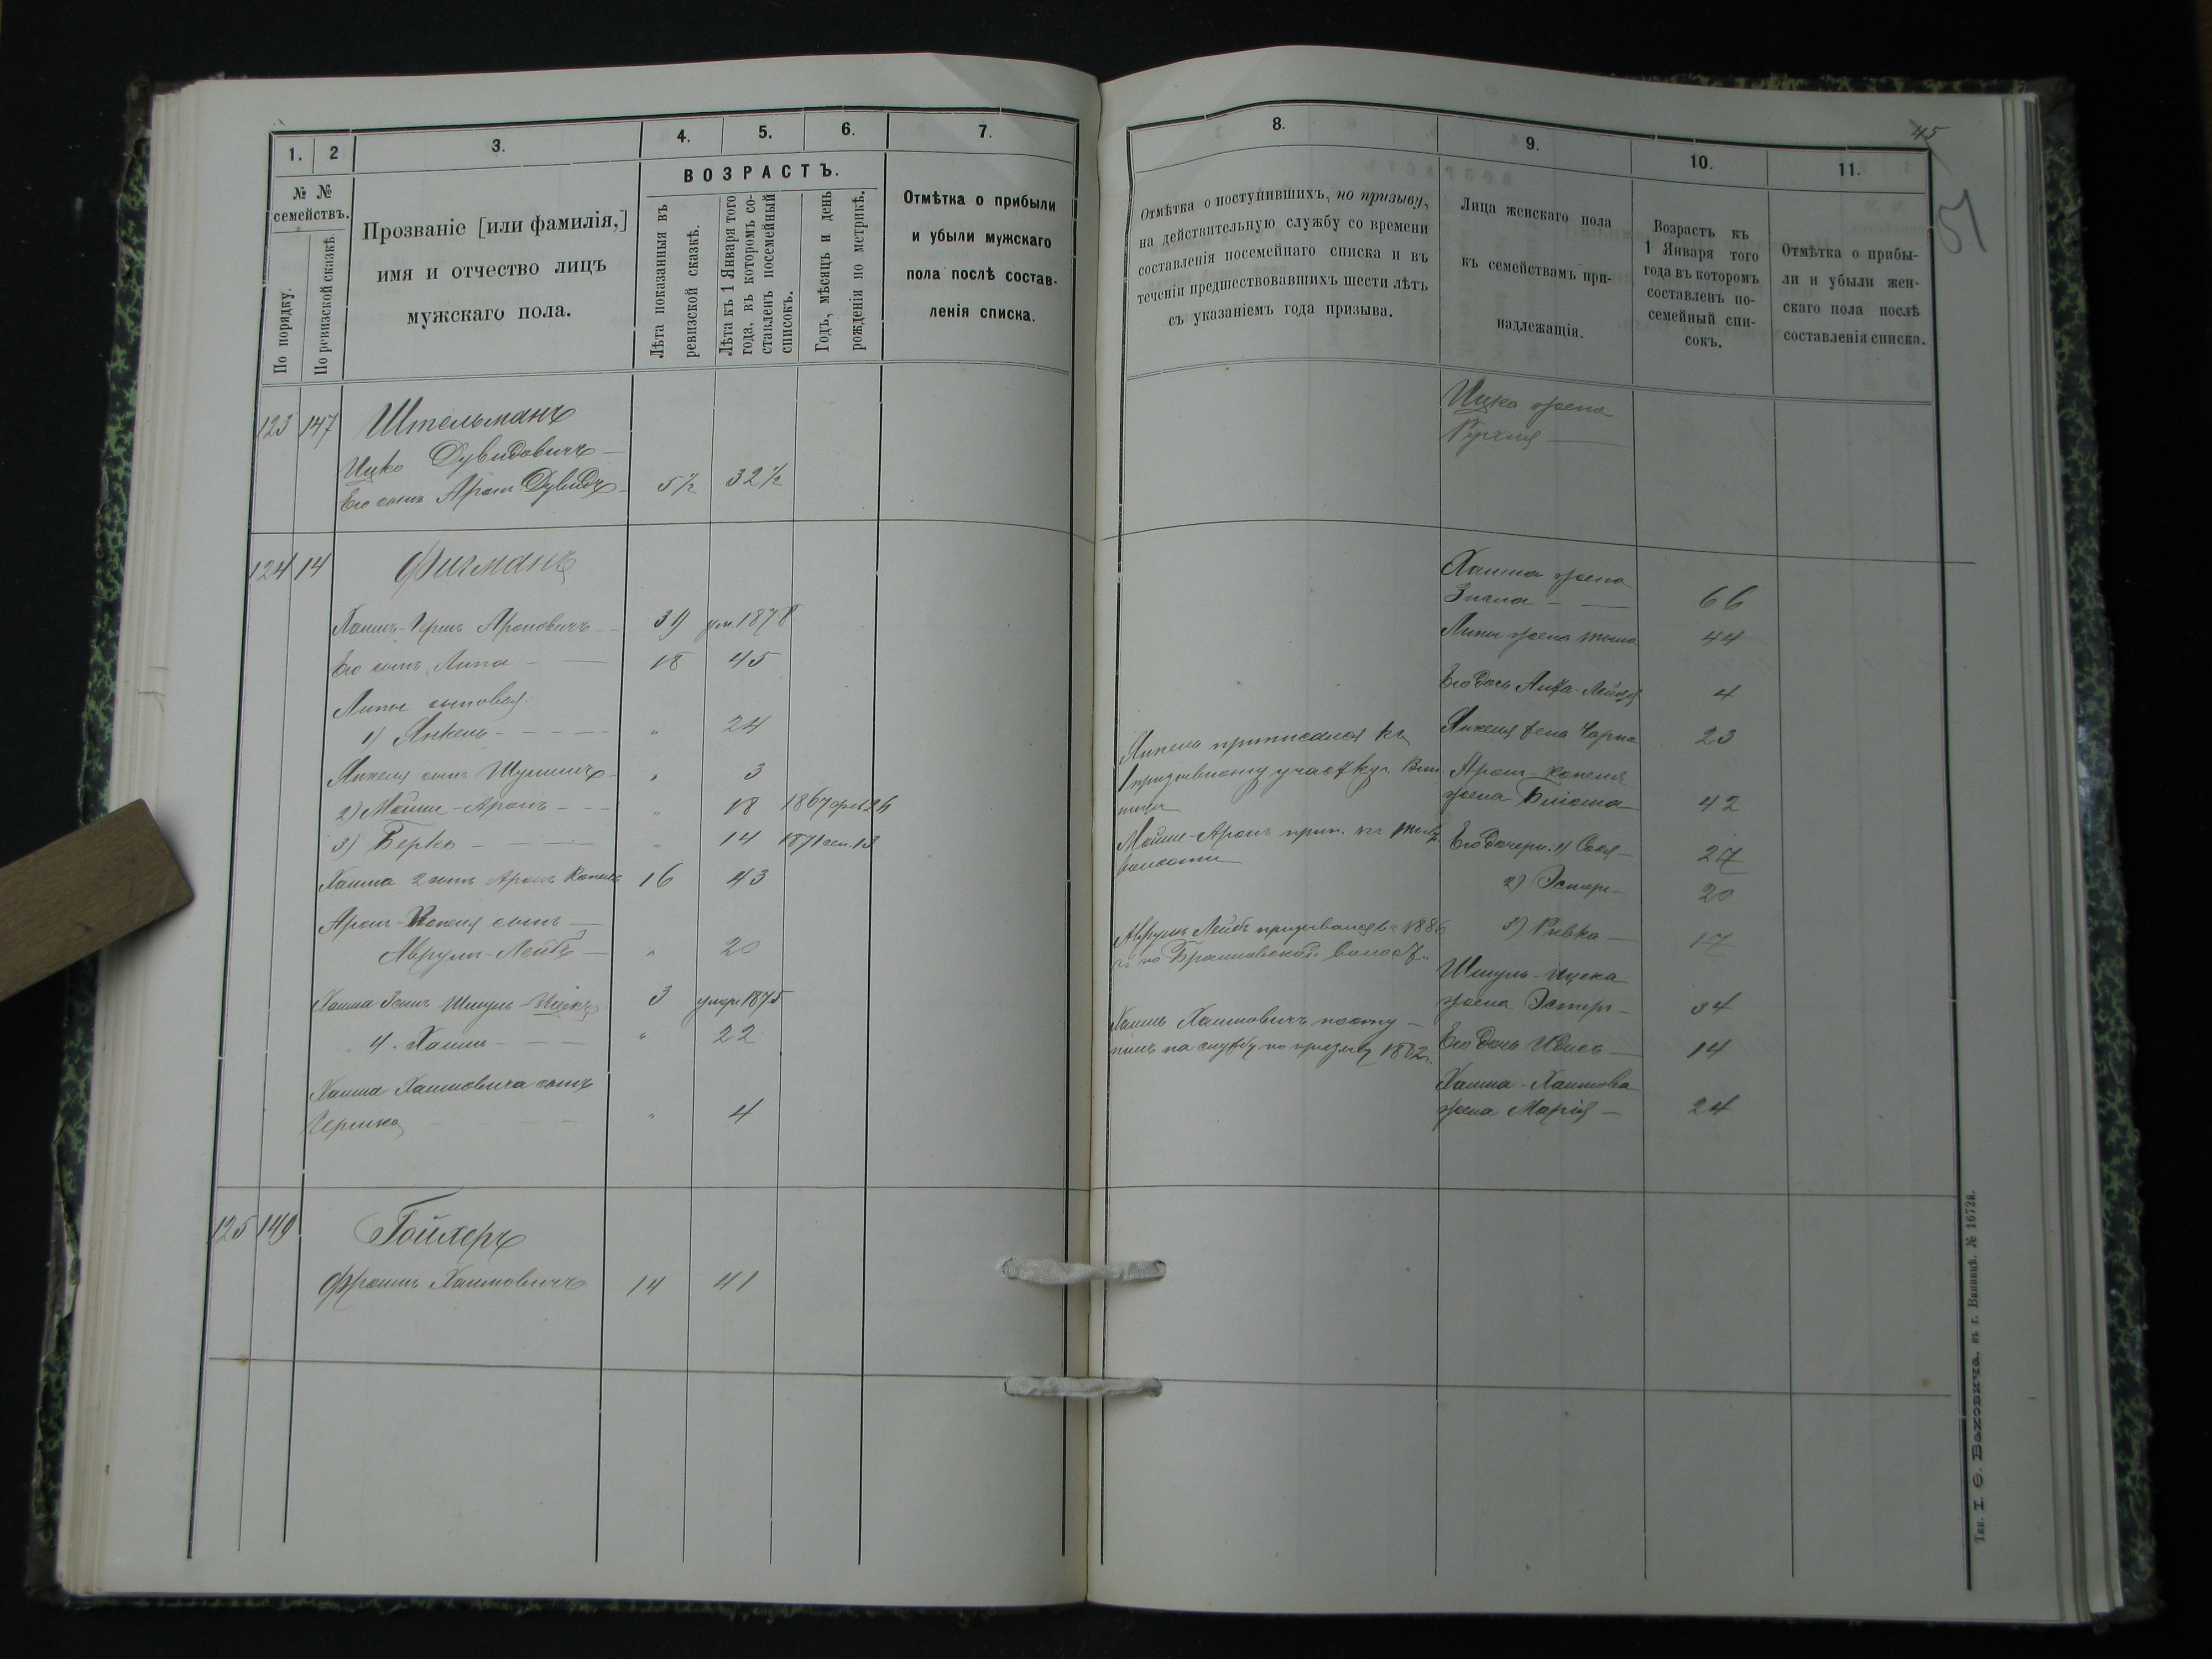 1. 2 3. 4. 5. 6. 7.
№ № семействъ.
По порядку.
По ревизской сказкѣ.
Прозваніе [или фамилія,]
имя и отчество лицъ
мужскаго пола.
ВОЗРАСТЪ.
Лѣта показанныя въ
ревизской сказкѣ.
Лѣта къ 1 Января того
года, въ которомъ со-
ставленъ посемейный
списокъ.
Годъ, мѣсяцъ и день
рожденія по метрикѣ.
Отмѣтка о прибыли
и убыли мужскаго
пола послѣ состав-
ленія списка.
123 147 Штельманъ
Ицко Дувидовичъ —
Его сынъ Аронъ Дувидъ 5½ 32½
124 14 Фигманъ
Хаимъ-Гершъ Ароновичъ — 39 ум. 1878
Его сынъ Липа — — 18 45
Липы сыновья
1) Янкель - - - - „ 24
Янкеля сынъ Шулимъ „ 3
2) Мойше-Аронъ - - - „ 18 1867 фев 26
3) Берко - — — „ 14 1871 сен. 13
Хаима 2 сынъ Аронъ Копель 16 43
Аронъ-Копеля сынъ —
Аврумъ-Лейбъ — „ 20
Хаима 3 сынъ Шмуль-Ицекъ 3 умеръ 1875
4. Хаимъ - — — „ 22
Хаима Хаимовича сынъ
Гершко „ 4
125 149 Гойхеръ
Фроимъ Хаимовичъ 14 41
45
51
8. 9. 10. 11.
Отмѣтка о поступившихъ, по призыву,
на дѣйствительную службу со времени
составленія посемейнаго списка и въ
теченіи предшествовавшихъ шести лѣтъ
съ указаніемъ года призыва.
Лица женскаго пола
къ семействамъ при-
надлежащія.
Возрастъ къ
1 Января того
года въ которомъ
составленъ по-
семейный спи-
сокъ.
Отмѣтка о прибы-
ли и убыли жен-
скаго пола послѣ
составленія списка.
Ицка жена
Рухля —
Хаима жена
Зисла — — 66
Липы жена 44
Его дочь Лейя 4
Янкель приписался къ Янкеля жена Чарна 23
1 призывному участку г. Вин- Аронъ-Копеля
ницы жена 42
Мойше-Аронъ прип. къ
волости Его дочери: 1) Сося — 27
2) Эстеръ — 20
Аврумъ Лейбъ призывался въ 1886 3) Ривка — 17
г. по Браиловской волост.
Шмуль-Ицека
жена Эстеръ — 34
Хаимъ Хаимовичъ посту-
пилъ на службу по призыву 1882 г. Его дочь 14
Хаима-Хаимова
жена Марія — 24
Тип. І. Ѳ.Ваховича, въ г. Винницѣ. № 1672в.